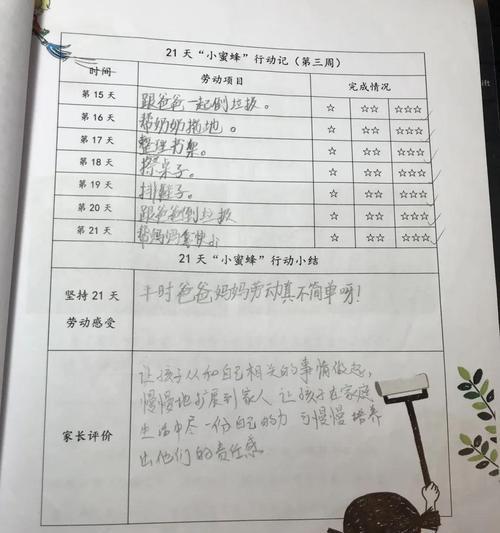 21 天“小蜜蜂”行动记（第三周）
时间 劳动项目 完成情况
第 15 天 跟爸爸一起倒垃圾。 ☆ ☆☆ ☆☆☆
第 16 天 帮奶奶拖地。 ☆ ☆☆ ☆☆☆
第 17 天 整理书架。 ☆ ☆☆ ☆☆☆
第 18 天 擦桌子。 ☆ ☆☆ ☆☆☆
第 19 天 排鞋子。 ☆ ☆☆ ☆☆☆
第 20 天 跟爸爸倒垃圾 ☆ ☆☆ ☆☆☆
第 21 天 帮妈妈拿快 ☆ ☆☆ ☆☆☆
21 天“小蜜蜂”行动小结
坚持 21 天
劳动感受
平时爸爸妈妈劳动真不简单呀！
家长评价
让孩子从和自己相关的事情做起，
慢慢地扩展到家人 让孩子在家庭
生活中尽一份自己的力 可慢慢培养
出他们的责任感